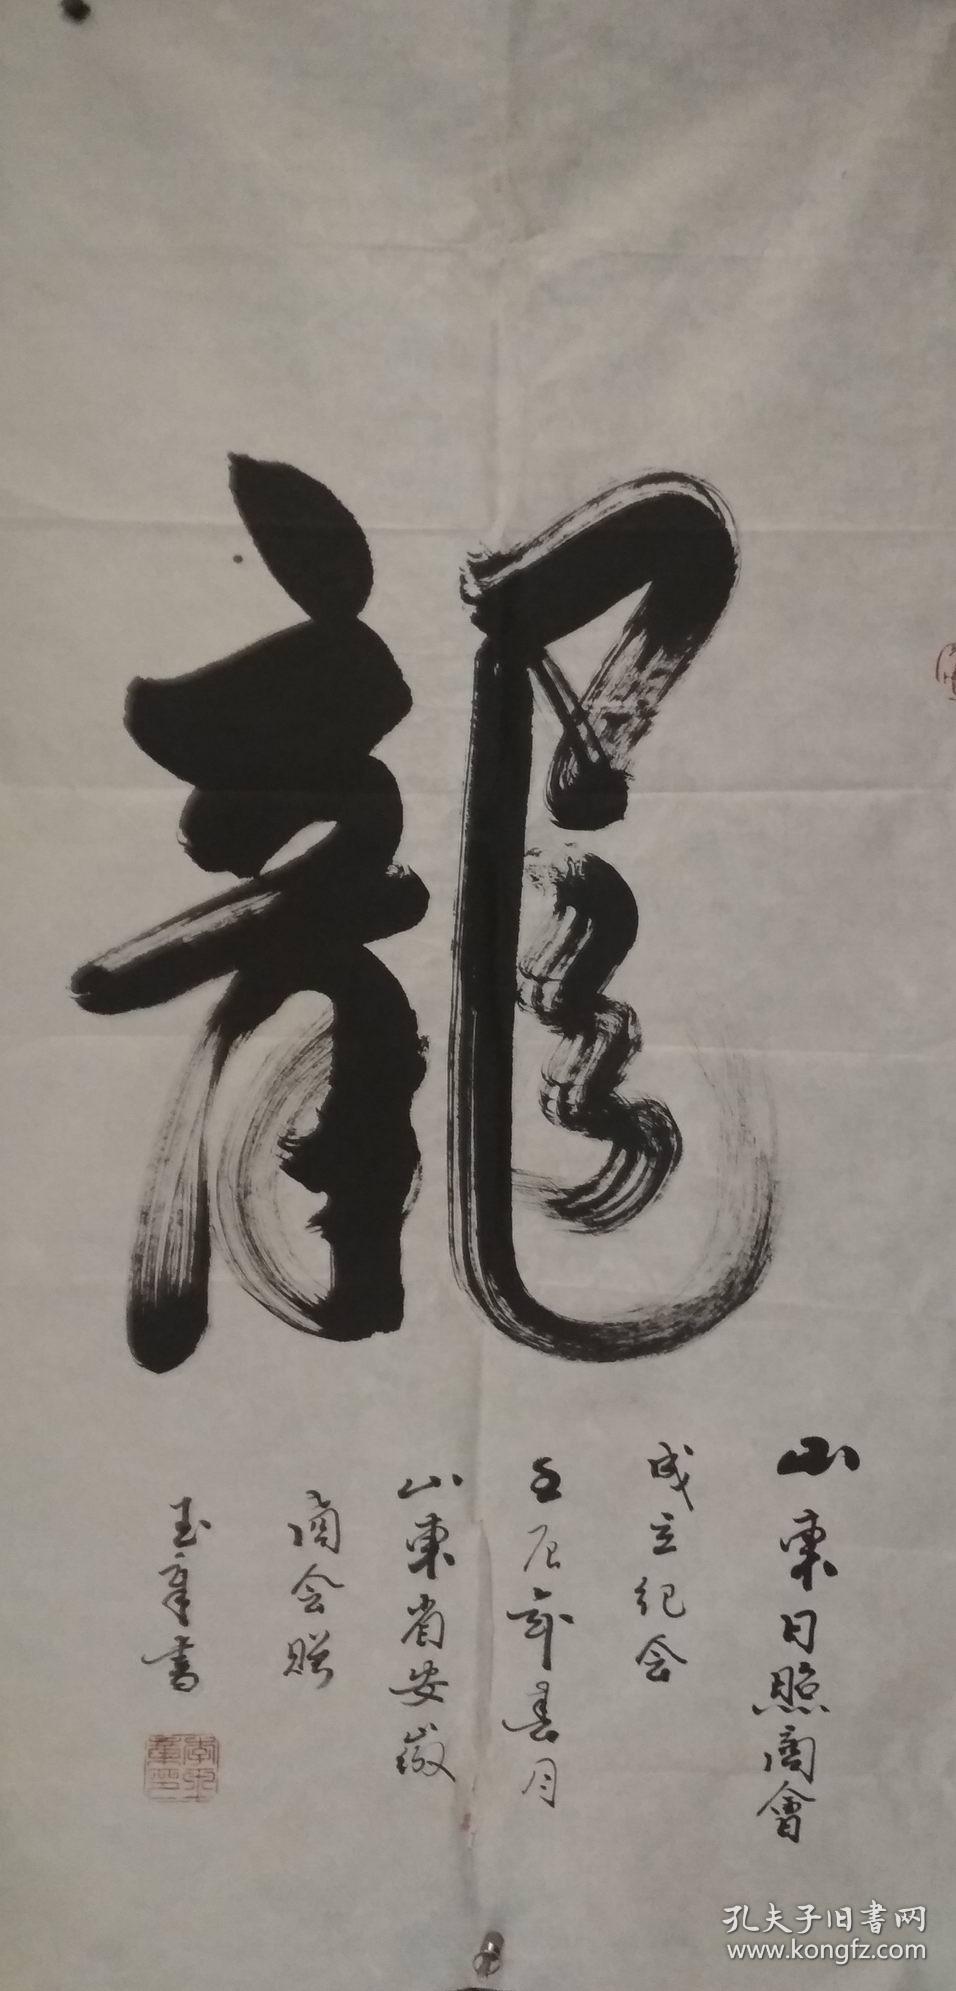 龍
山東日照商會
成立纪念
壬辰年春月
山東省安徽
商会贈
玉章書
孔夫子旧書网
www.kongfz.com